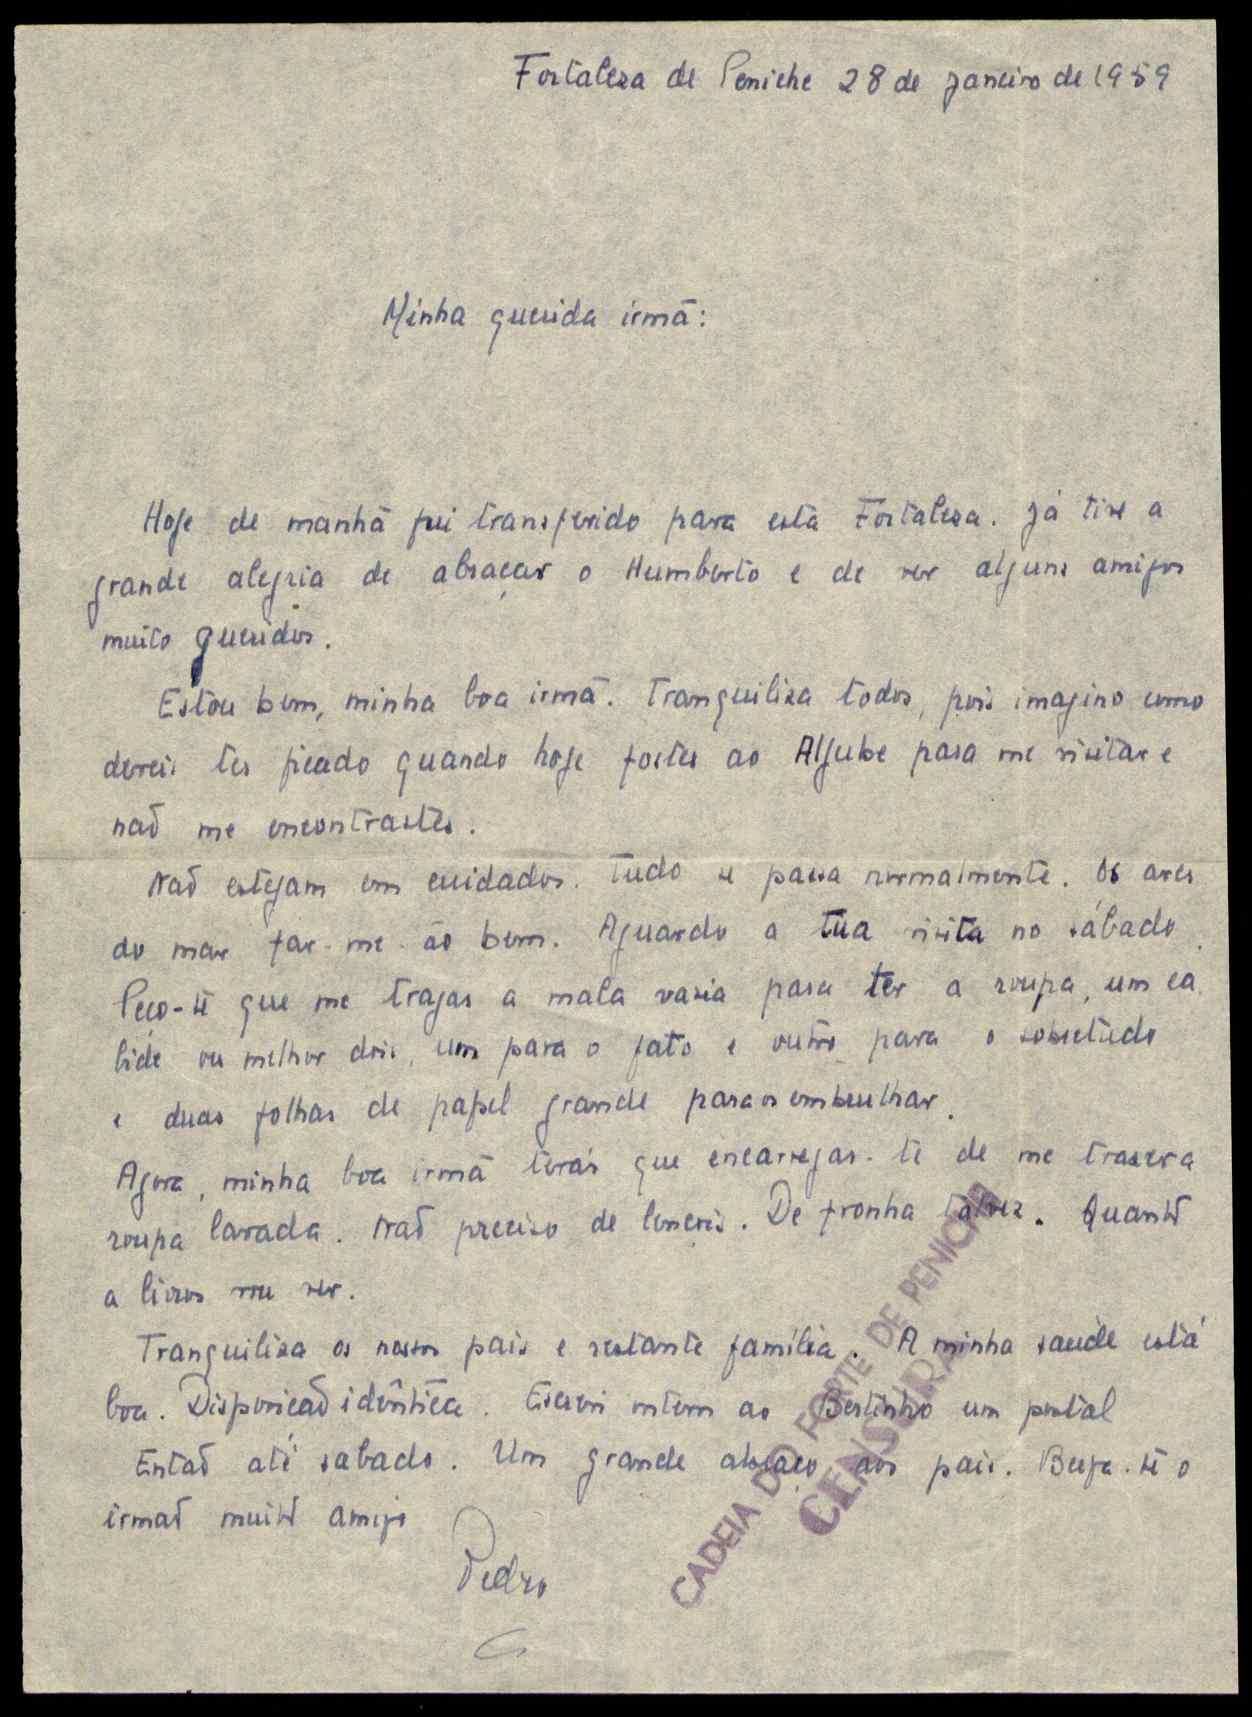 Fortaleza de Peniche 28 de Janeiro de 1959
Minha querida irmã:
Hoje de manhã fui transferido para esta Fortaleza. Já tive a
grande alegria de abraçar o Humberto e de ver alguns amigos
muito queridos.
Estou bem, minha boa irmã. Tranquiliza todos, pois imagino como
deveis ter ficado quando hoje fostes ao Aljube para me visitar e
não me encontrastes.
Não estejam em cuidados. Tudo se passa normalmente. Os ares
do mar far-me-ão bem. Aguardo a tua visita no sábado.
Peço-te que me tragas a mala vazia para ter a roupa, um ca
bide ou melhor dois, um para o fato e outro para o sobretudo
e duas folhas de papel grande para os embrulhar.
Agora, minha boa irmã terás que encarregar-te de me trazer a
roupa lavada. Não preciso de lençois. De fronha talvez. Quanto
a livros vou ver.
Tranquiliza os nossos pais e restante família. A minha saúde está
boa. Disposição idêntica. Escrevi ontem ao Bertinho um postal
Então até sabado. Um grande abraço aos pais. Beija-te o
irmão muito amigo
Pedro
CADEIA DO FORTE DE PENICHE
CENSURA